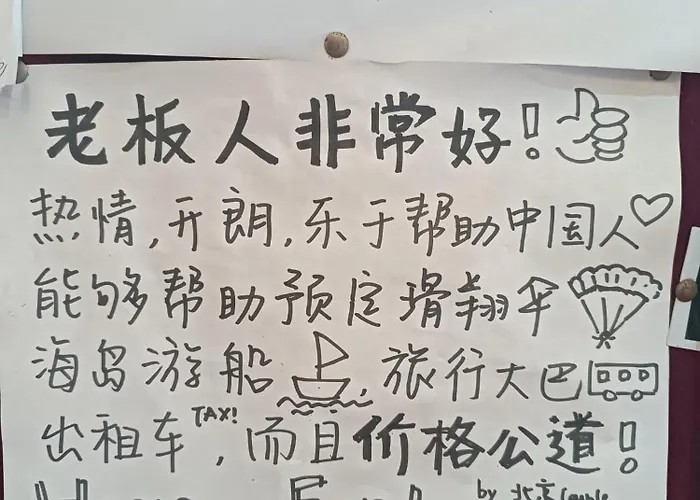 老板人非常好!
热情,开朗,乐于帮助中国人
能够帮助预定滑翔伞
海岛游船,旅行大巴
出租车TAX!,而且价格公道!
by 北京Couple